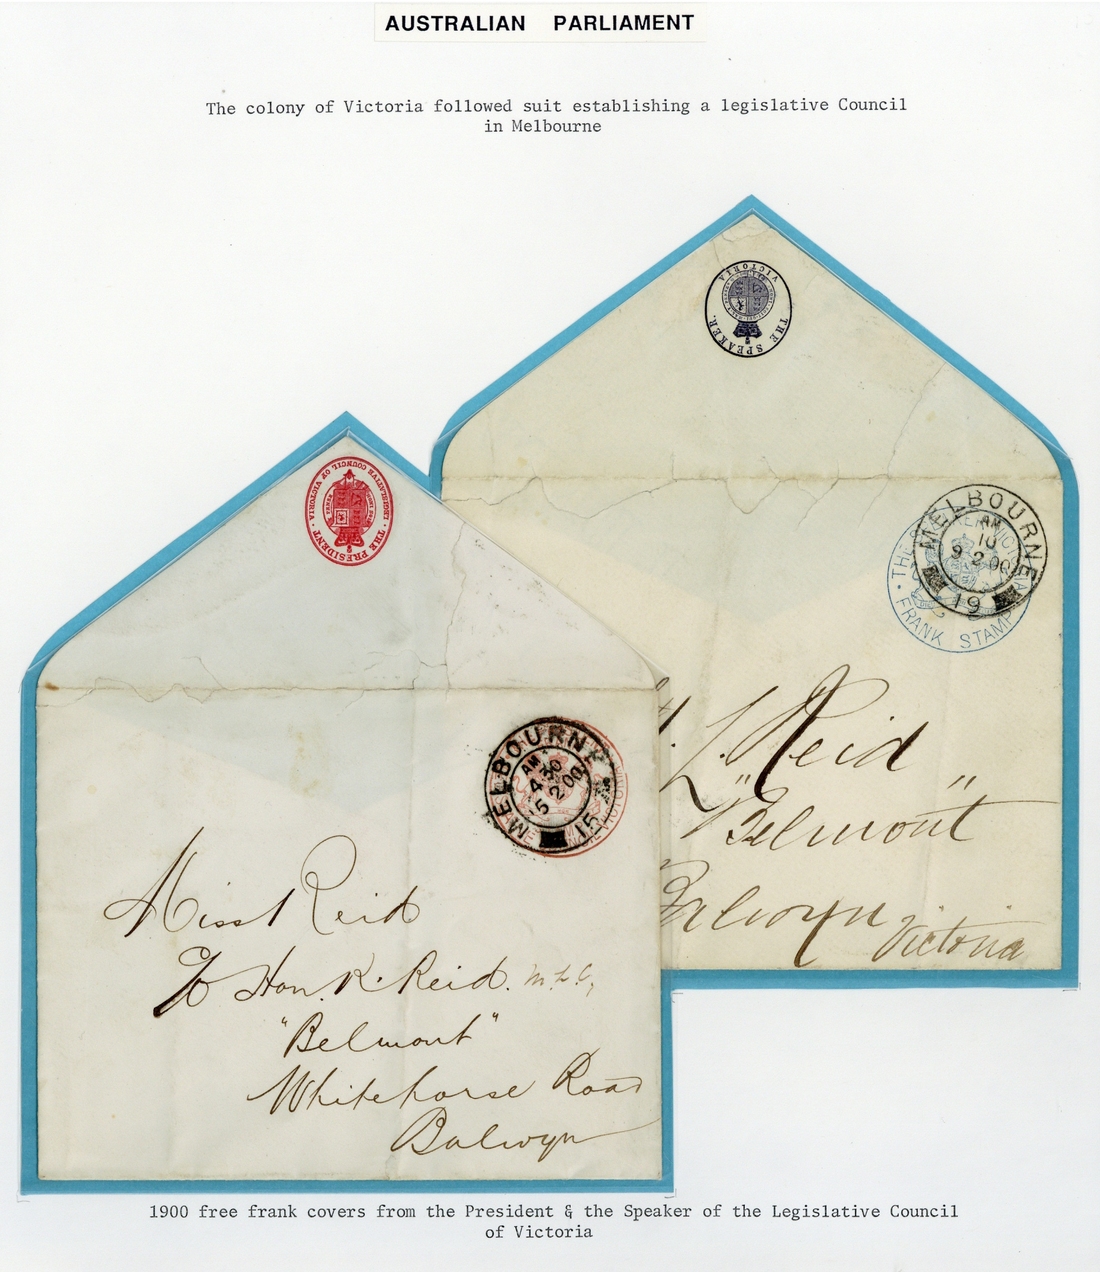 AUSTRALIAN PARLIAMENT
The colony of Victoria followed suit establishing a legislative Council
in Melbourne
THE SPEAKER.
VICTORIA
THE PRESIDENT
LEGISLATIVE COUNCIL OF VICTORIA
MELBOURNE
AM
10
9 2 00
19
FRANK STAMP
L. Reid
"Belmont"
Balwyn
Victoria
MELBOURNE
AM
4 30
5 2 00
15
Miss Reid
Hon. R. Reid. M.L.C,
"Belmont"
Whitehorse Road
Balwyn
1900 free frank covers from the President & the Speaker of the Legislative Council
of Victoria